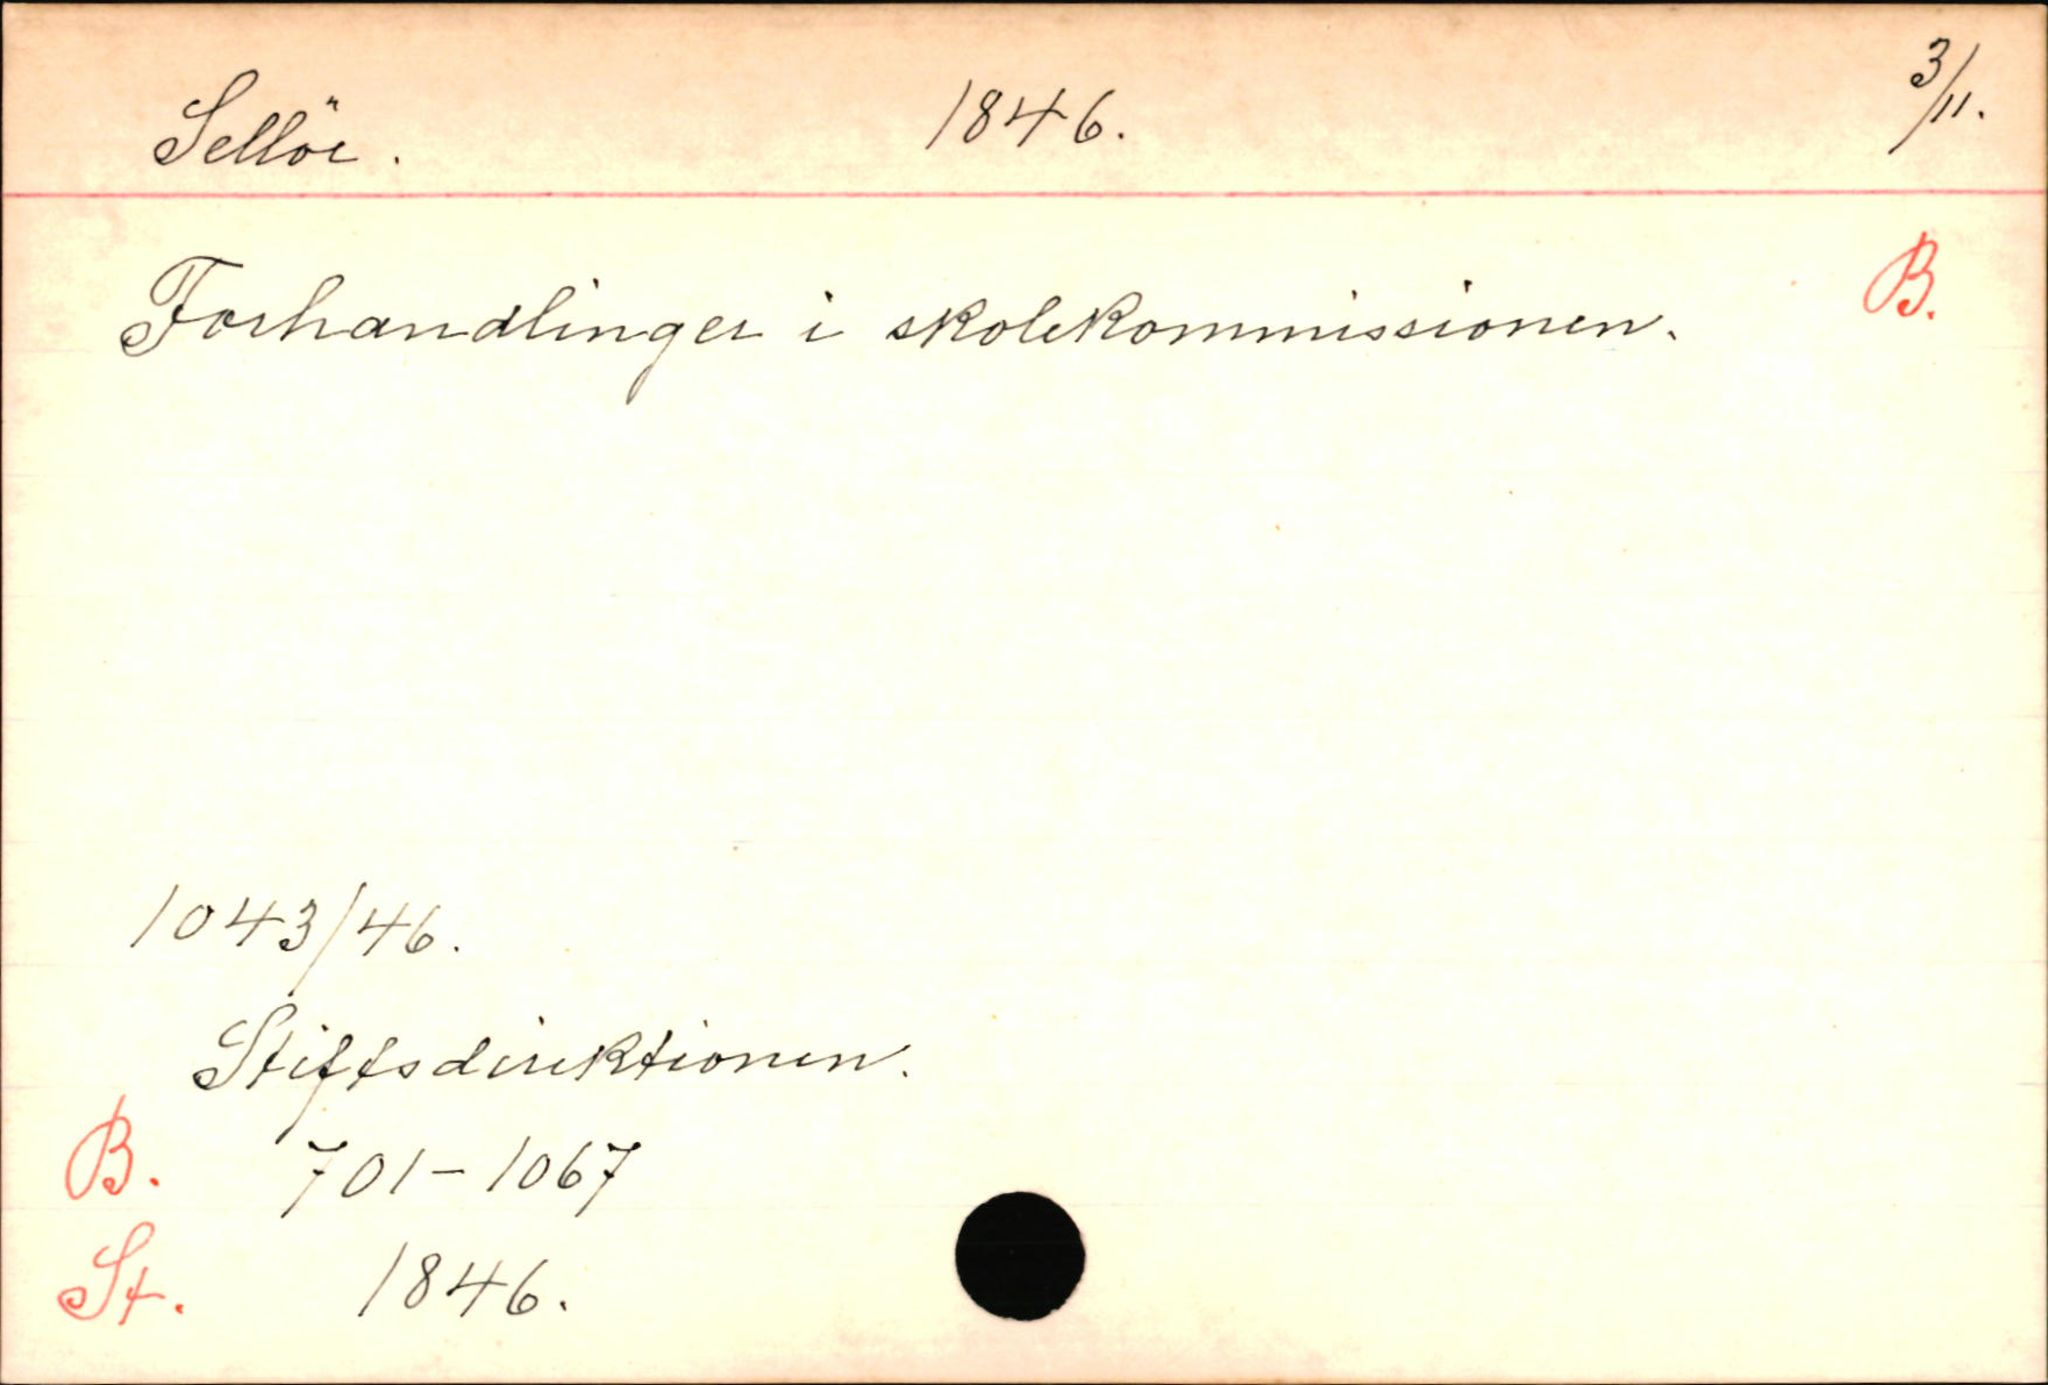 Sellöe. 1846. 3/11.
Forhandlinger i skolekommissionen. B.
1043/46.
Stiftsdirektionen.
B. 701-1067
St. 1846.